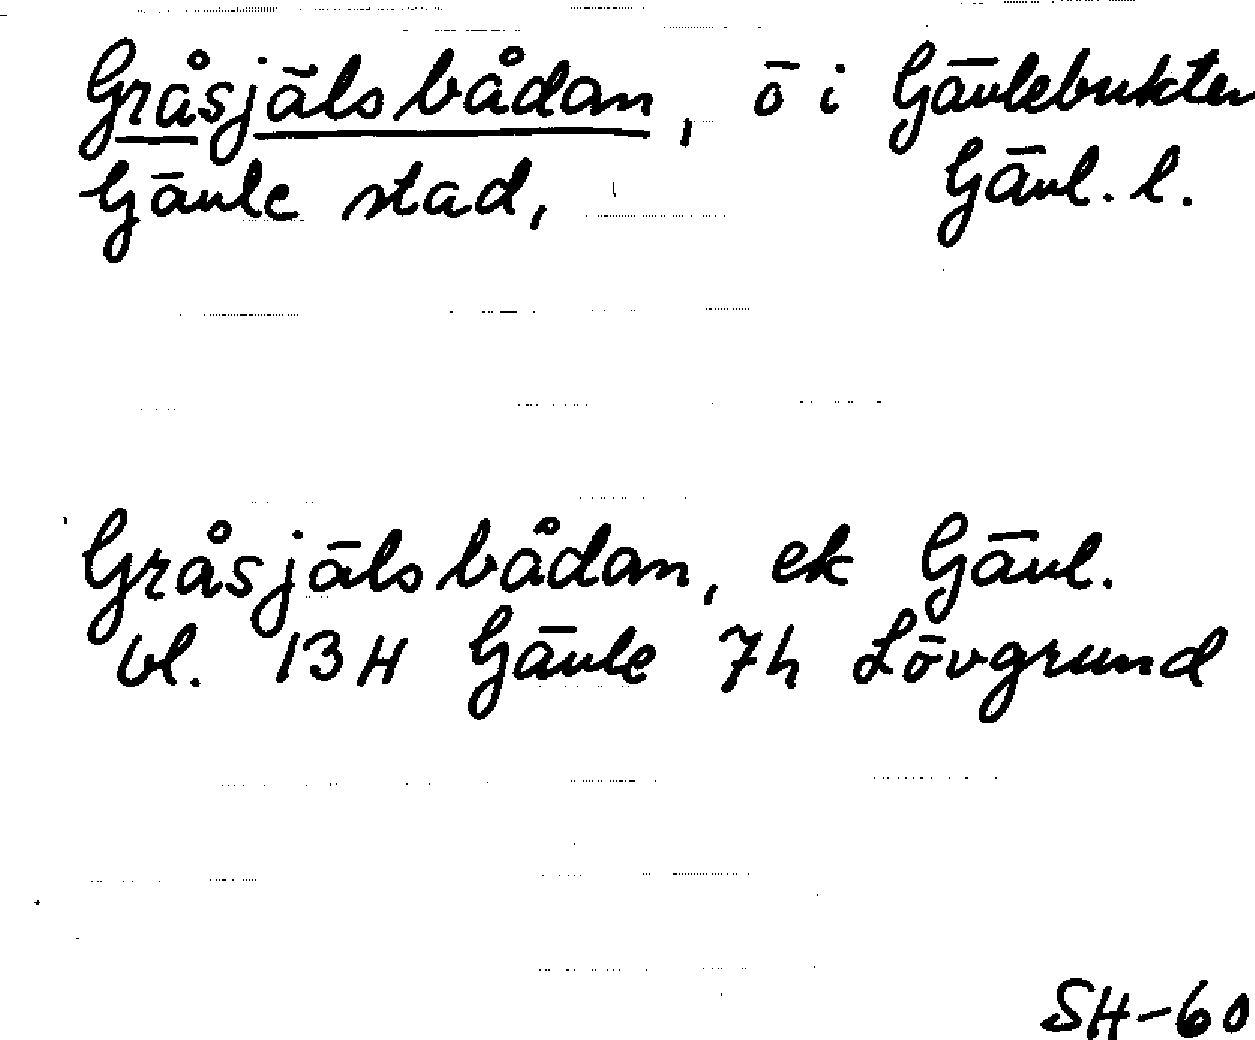 Gråsjälsbådan, ö i Gävlebukten
Gävle stad, Gävl. l.
Gråsjälsbådan, ek Gävl.
bl. 13H Gävle 7h Lövgrund
SH-60